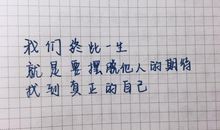 我们终此一生
就是要摆脱他人的期待
找到真正的自己